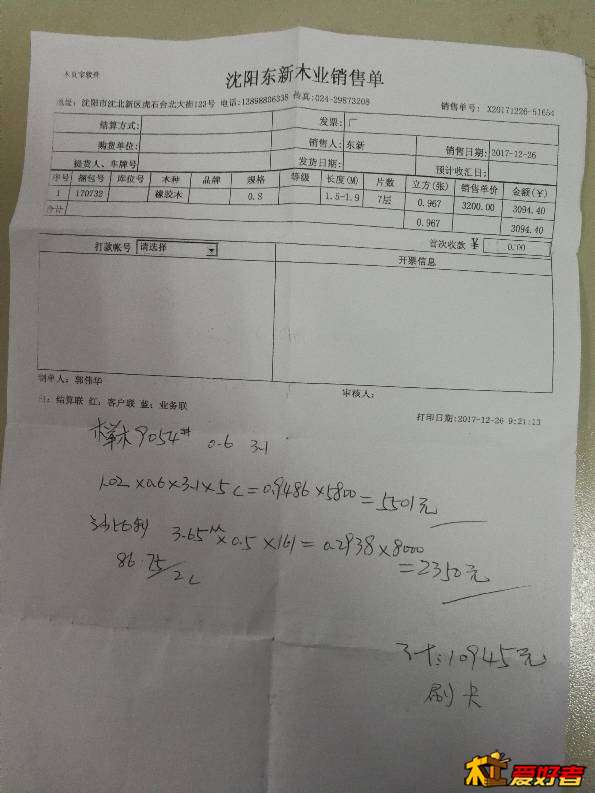 木頁宝软件
沈阳东新木业销售单
地址: 沈阳市沈北新区虎石台北大街123号 电话:12898836338 传真:024-29873208 销售单号: X20171226-51654
结算方式: 发票: 厂
购货单位: 销售人: 东新 销售日期: 2017-12-26
提货人、车牌号 发货日期: 预计收汇日:
序号 捆包号 库位号 木种 品牌 规格 等级 长度(M) 片数 立方(张) 销售单价 金额(¥)
1 170732 橡胶木 0.8 1.5-1.9 7层 0.967 3200.00 3094.40
合计 0.967 3094.40
打款帐号 请选择 首次收款 ¥ 0.00
开票信息
制单人: 郭伟华 审核人:
白: 结算联 红: 客户联 蓝: 业务联
打印日期:2017-12-26 9:21:13
9054# 0.6 3.1
1.02×0.6×3.1×5L=0.9486×5800=5501元
3.65M×0.5×161=0.2938×8000
86.75/2L =2350元
计:10945元
刷卡
木工爱好者